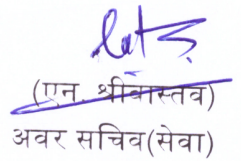 (एन. श्रीवास्तव)
अवर सचिव(सेवा)